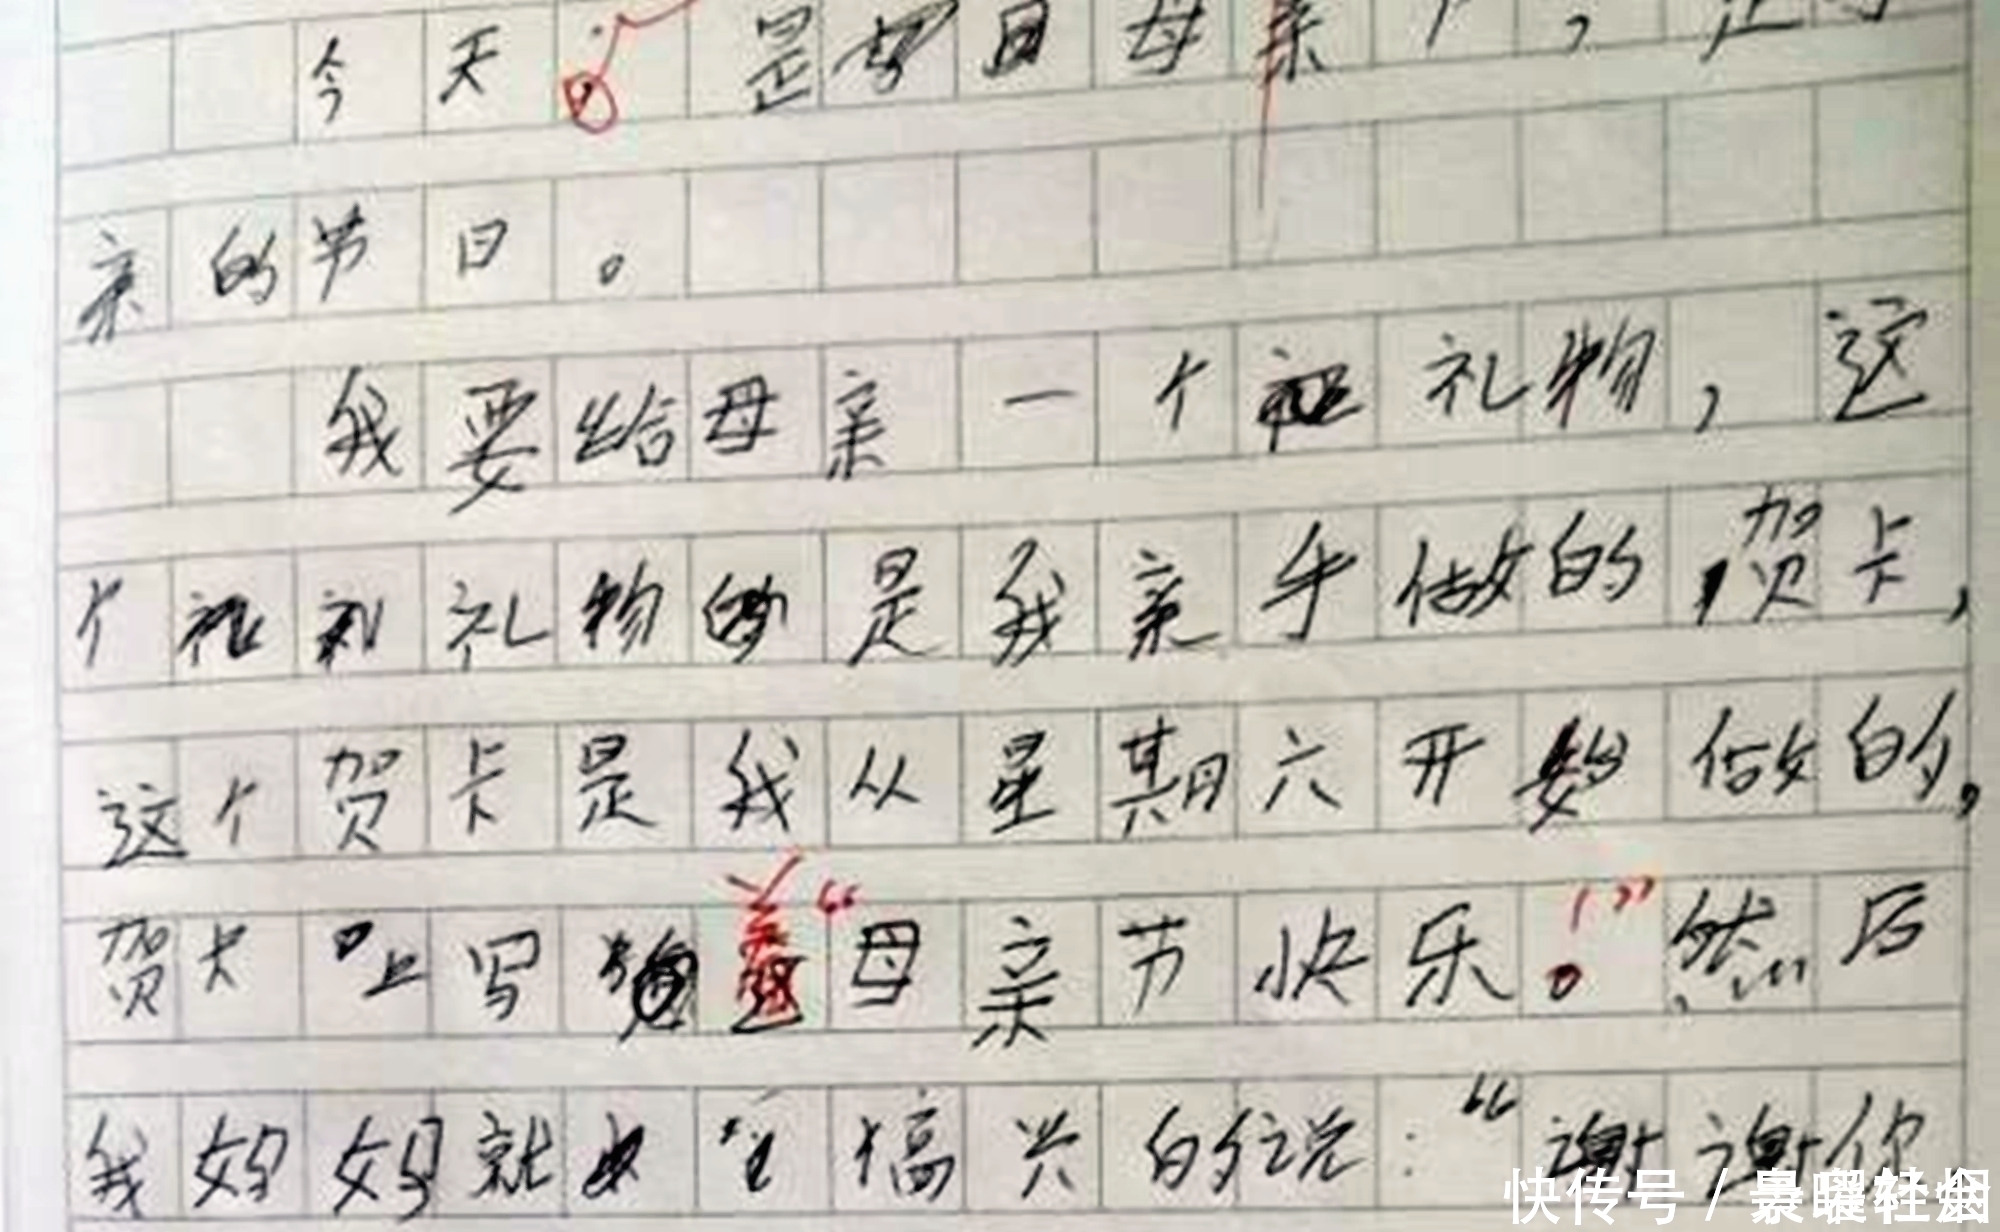 今天是母亲节,
亲的节日。
我要给母亲一个礼物,这
个礼物是我亲手做的贺卡,
这个贺卡是我从星期六开始做的,
贺卡上写着“母亲节快乐!”然后
我妈妈就搞兴的说:“谢谢你
快传号/